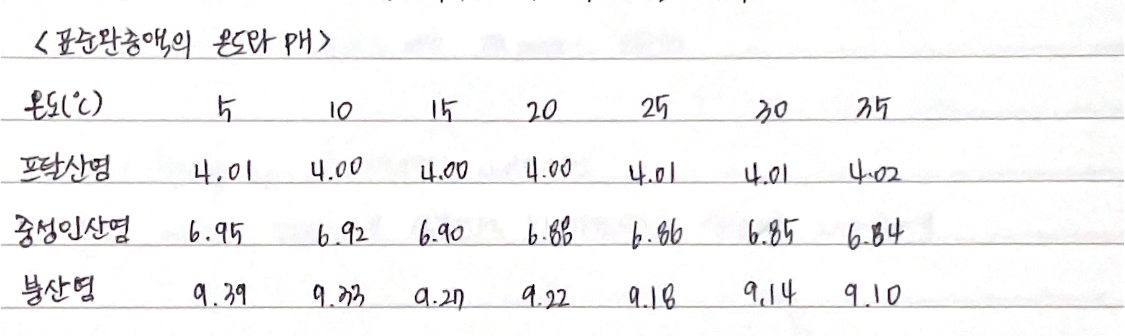 <표준완충액의 온도와 pH>
온도(℃) 5 10 15 20 25 30 35
프탈산염 4.01 4.00 4.00 4.00 4.01 4.01 4.02
중성인산염 6.95 6.92 6.90 6.88 6.86 6.85 6.84
붕산염 9.39 9.33 9.27 9.22 9.18 9.14 9.10